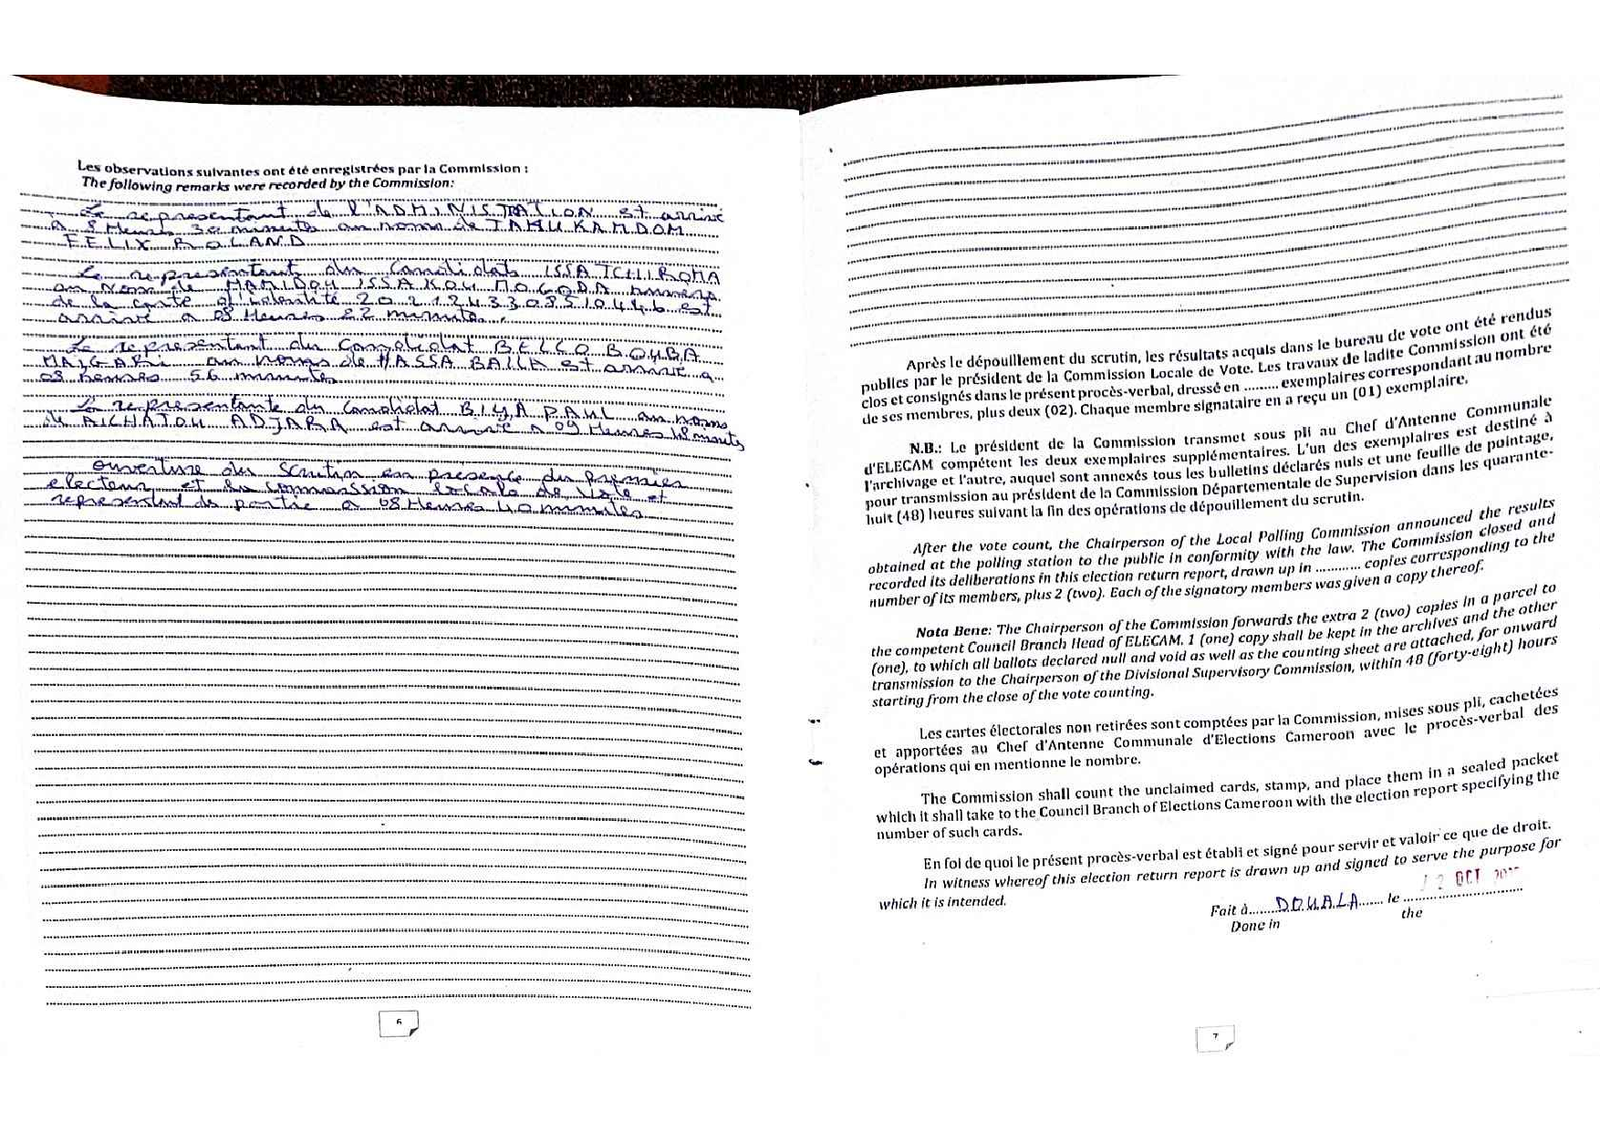 Les observations suivantes ont été enregistrées par la Commission :
The following remarks were recorded by the Commission:
Le representant de l'ADMINISTRATION est arrivé
A 8 Heures 30 minutes au noms de TAMU KAMDOM
FELIX ROLAND
Le representant du Candidats ISSA TCHIROMA
au Noms de HAMIDOU ISSAKOU
de la carte d'identité est
arrivé a 08 Heures 22 minutes.
Le representant du Candidat BELLO BOUBA
MAIGARI au noms de HASSA BAILA est arrivé a
08 heures 56 minutes
La representante du Candidat BIYA PAUL au noms
de AICHATOU ADJARA est arrivé a 09 Heures 18 minuts
Ouverture du Scrutin en presence du premier
electeur et la commission locale de Vote et
representant de partie a 08 Heures 40 minutes
6
Après le dépouillement du scrutin, les résultats acquis dans le bureau de vote ont été rendus
publics par le président de la Commission Locale de Vote. Les travaux de ladite Commission ont été
clos et consignés dans le présent procès-verbal, dressé en ......... exemplaires correspondant au nombre
de ses membres, plus deux (02). Chaque membre signataire en a reçu un (01) exemplaire.
N.B.: Le président de la Commission transmet sous pli au Chef d'Antenne Communale
d'ELECAM compétent les deux exemplaires supplémentaires. L'un des exemplaires est destiné à
l'archivage et l'autre, auquel sont annexés tous les bulletins déclarés nuls et une feuille de pointage,
pour transmission au président de la Commission Départementale de Supervision dans les quarante-
huit (48) heures suivant la fin des opérations de dépouillement du scrutin.
After the vote count, the Chairperson of the Local Polling Commission announced the results
obtained at the polling station to the public in conformity with the law. The Commission closed and
recorded its deliberations in this election return report, drawn up in ........... copies corresponding to the
number of its members, plus 2 (two). Each of the signatory members was given a copy thereof.
Nota Bene: The Chairperson of the Commission forwards the extra 2 (two) copies in a parcel to
the competent Council Branch Head of ELECAM. 1 (one) copy shall be kept in the archives and the other
(one), to which all ballots declared null and void as well as the counting sheet are attached, for onward
transmission to the Chairperson of the Divisional Supervisory Commission, within 48 (forty-eight) hours
starting from the close of the vote counting.
Les cartes électorales non retirées sont comptées par la Commission, mises sous pli, cachetées
et apportées au Chef d'Antenne Communale d'Elections Cameroon avec le procès-verbal des
opérations qui en mentionne le nombre.
The Commission shall count the unclaimed cards, stamp, and place them in a sealed packet
which it shall take to the Council Branch of Elections Cameroon with the election report specifying the
number of such cards.
En foi de quoi le présent procès-verbal est établi et signé pour servir et valoir ce que de droit.
In witness whereof this election return report is drawn up and signed to serve the purpose for
which it is intended.
Fait à ....... DOUALA ....... le OCT
Done in the
7